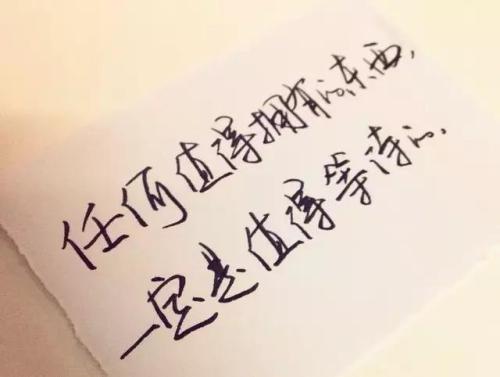 任何值得拥有的东西，
一定是值得等待的。